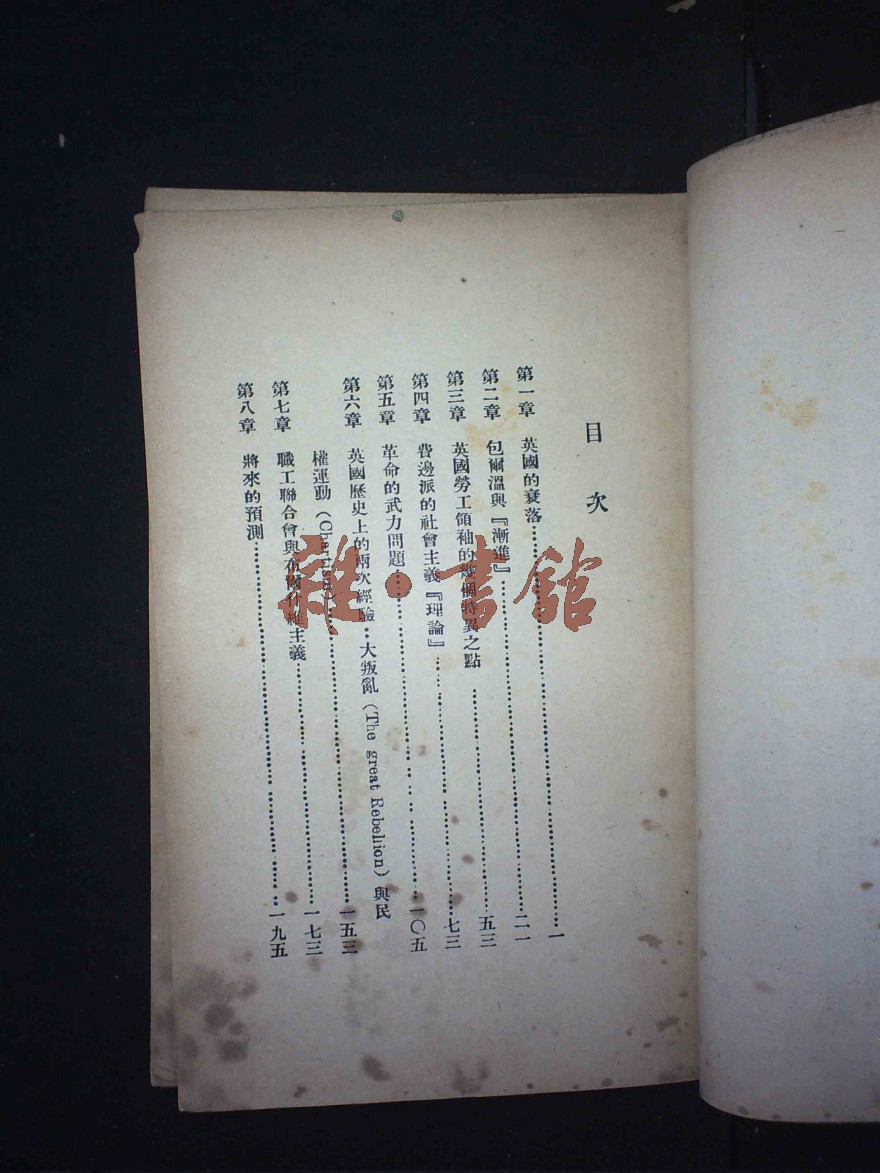 目次
第一章　英國的衰落……一
第二章　包爾溫與『漸進』……二一
第三章　英國勞工領袖的幾個特異之點……五三
第四章　費邊派的社會主義『理論』……七三
第五章　革命的武力問題……一〇五
第六章　英國歷史上的兩次經驗：大叛亂（The great Rebellion）與民
權運動（Chartism）……一五三
第七章　職工聯合會與布爾什維主義……一七三
第八章　將來的預測……一九五
雜·書館